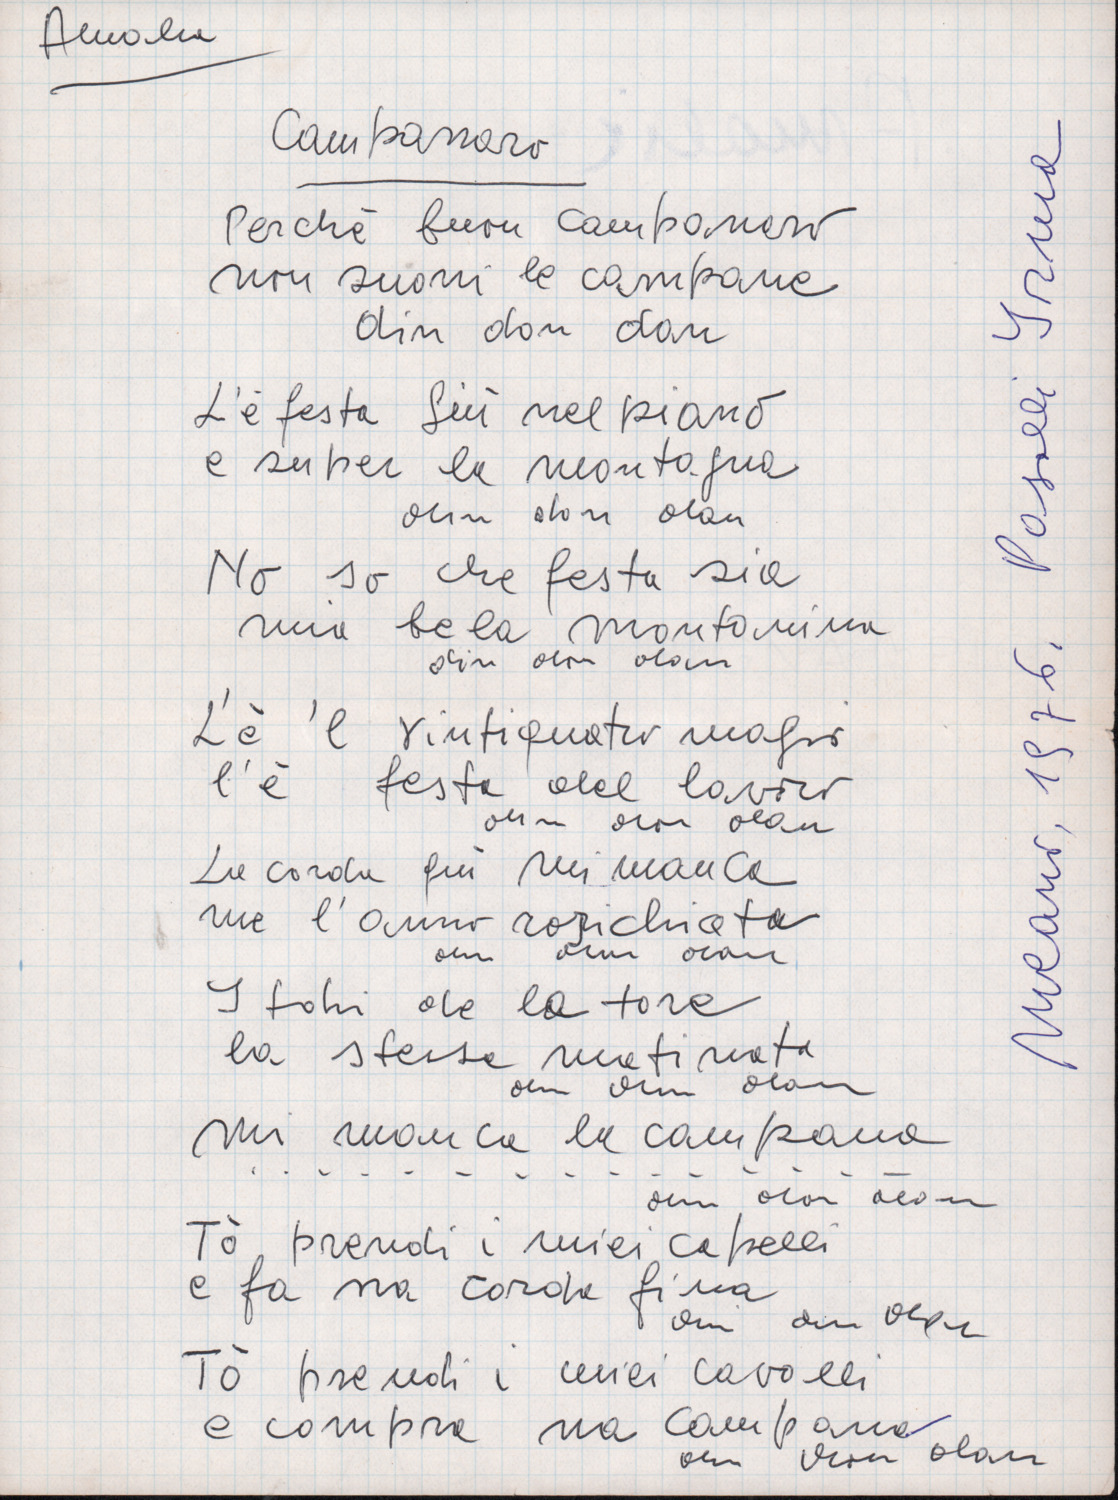 Amalia
Campanaro
Perchè buon campanaro
non suoni le campane
din don dan
L'è festa giù nel piano
e super la montagna
din don dan
No so che festa sia
mia bela montanina
din don dan
L'è 'l vintiquatro magio
l'è festa del lavoro
din don dan
La corda qui mi manca
me l'anno rozichiata
din don dan
I tohi de la tore
la stessa matinata
din don dan
mi manca la campana
din don dan
Tò prendi i miei capelli
e fa na corda fina
din don dan
Tò prendi i miei cavalli
e compra na campana
din don dan
Meano, 1976. Pasolli Irma